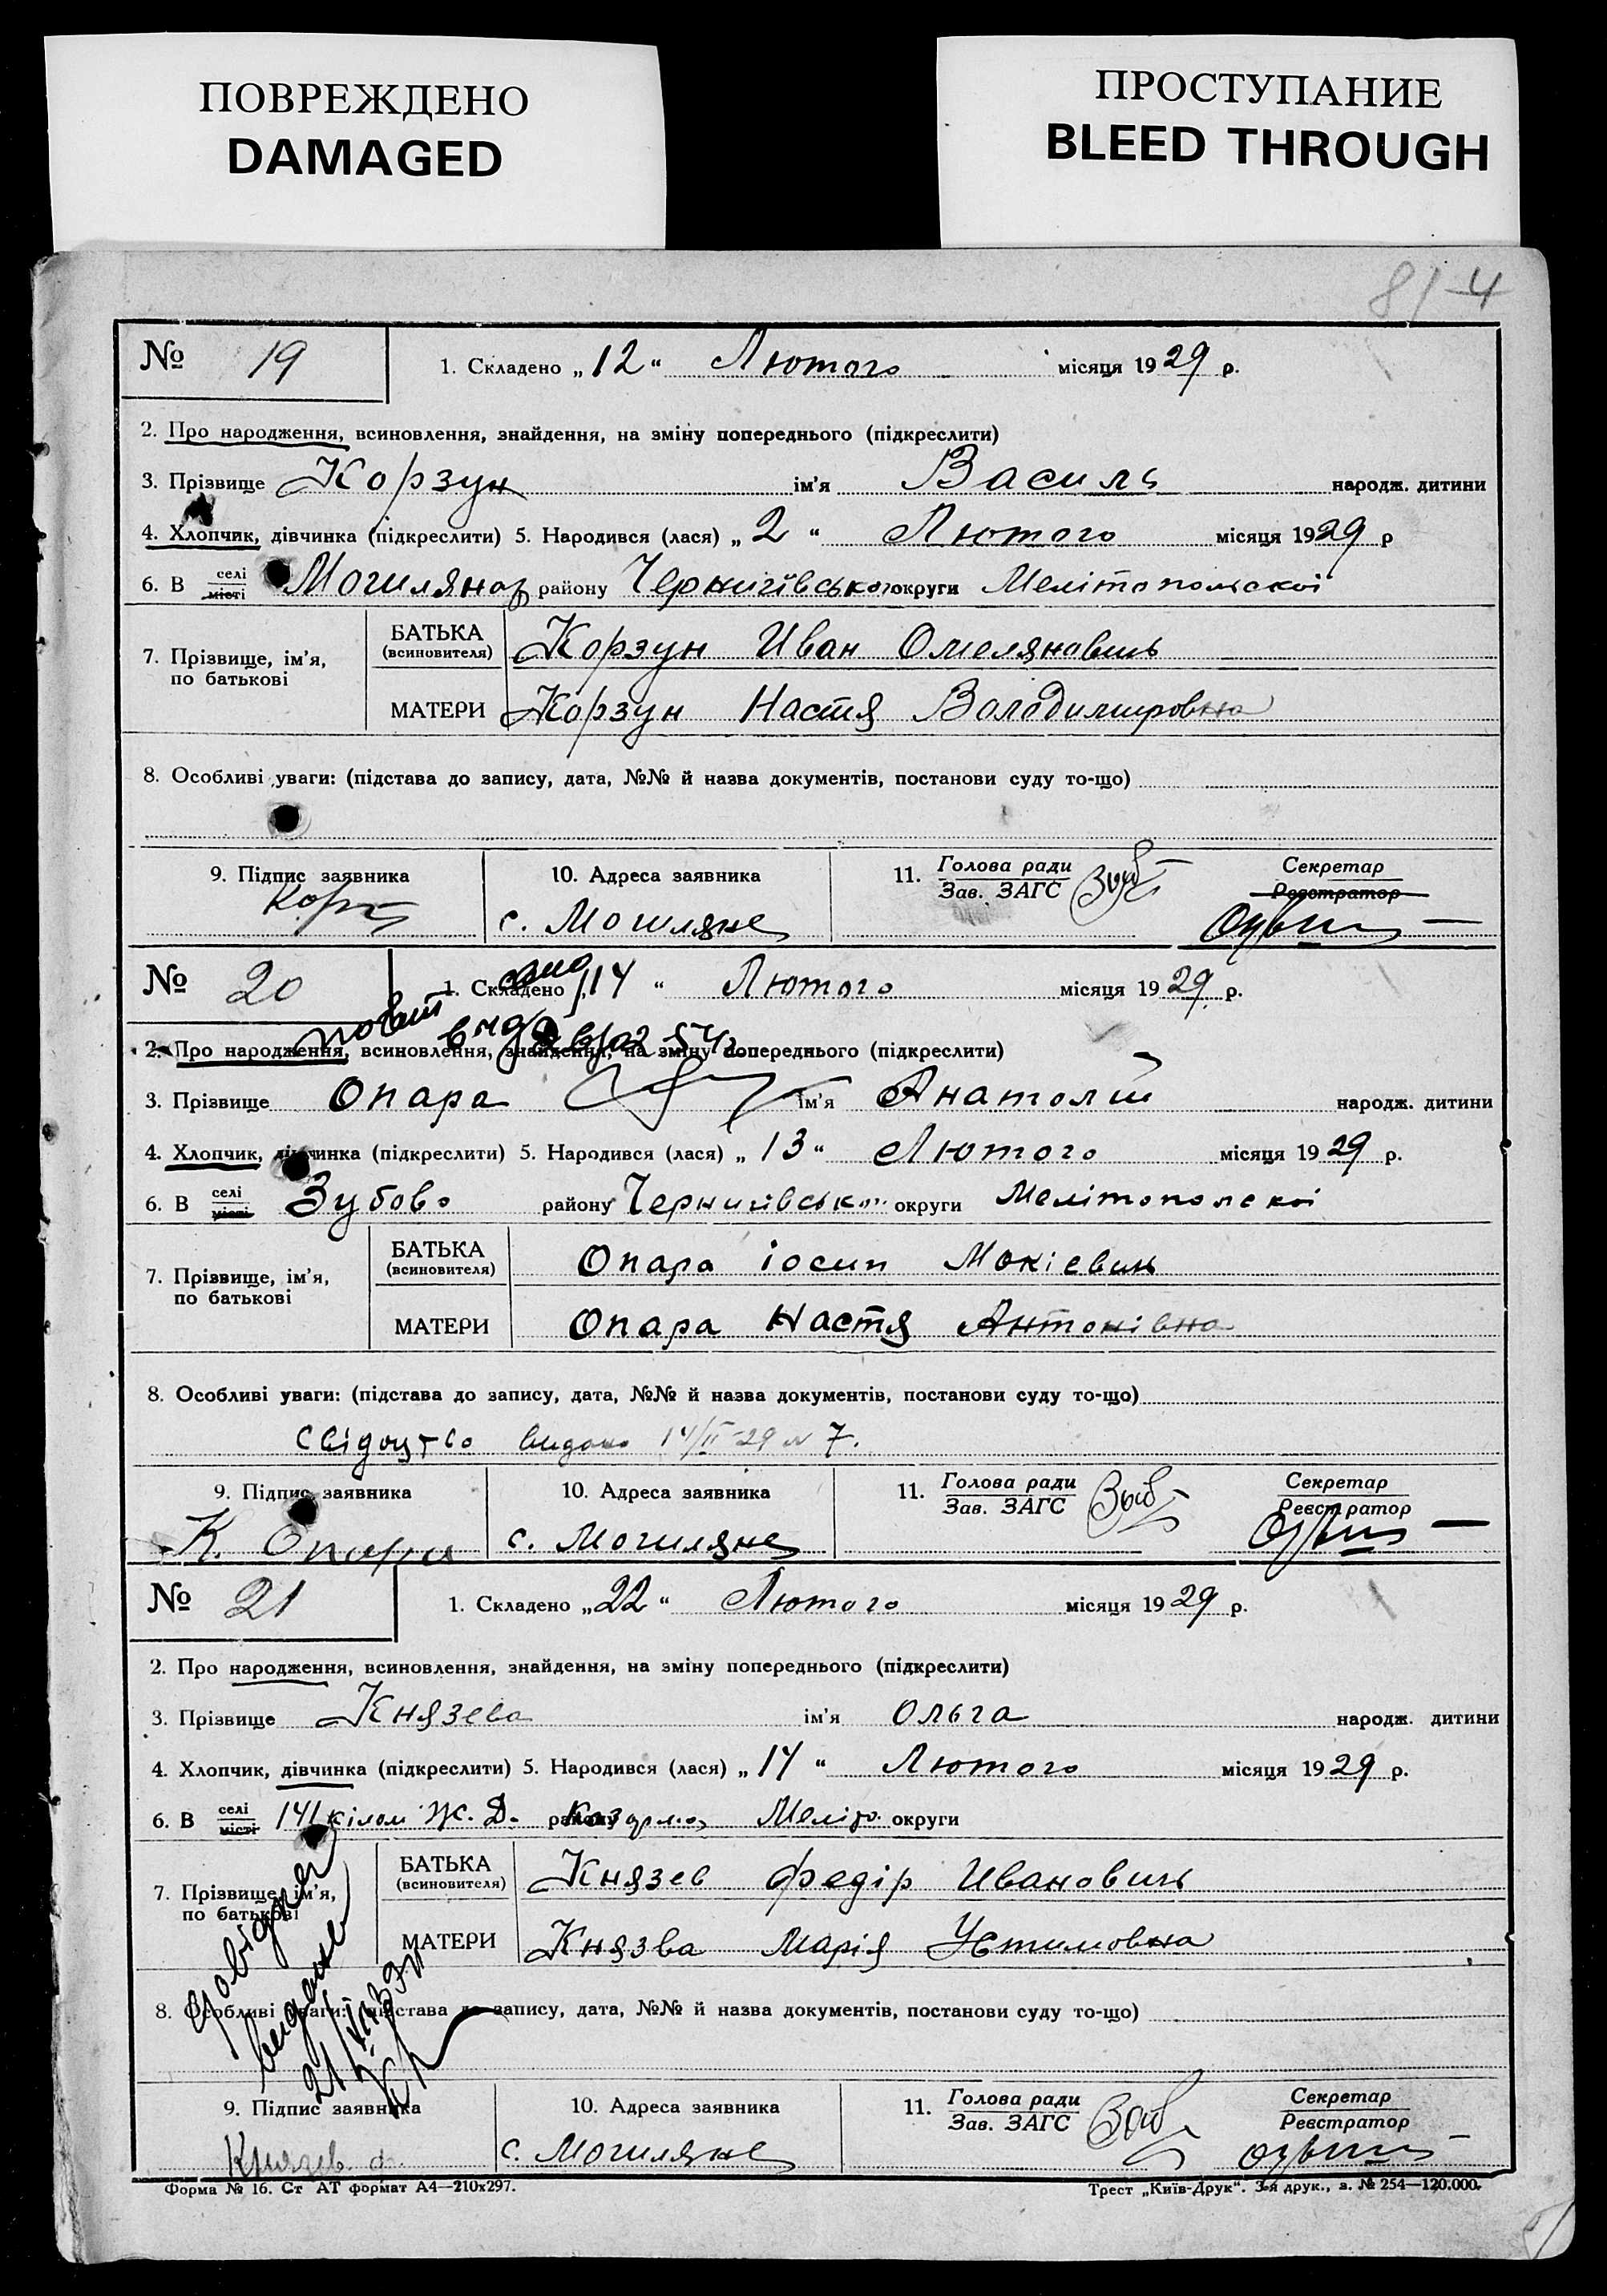 ПОВРЕЖДЕНО
DAMAGED
ПРОСТУПАНИЕ
BLEED THROUGH
81 4
№ 19 1. Складено „12“ Лютого місяця 1929 р.
2. Про народження, всиновлення, знайдення, на зміну попереднього (підкреслити)
3. Прізвище Корзун ім'я Василь народж. дитини
4. Хлопчик, дівчинка (підкреслити) 5. Народився (лася) „2“ Лютого місяця 1929 р
6. В селі місті Могиляны району Чернигівського округи Мелітопольскоі
7. Прізвище, ім'я, по батькові
БАТЬКА (всиновителя) Корзун Иван Омеляновичь
МАТЕРИ Корзун Настя Володимировна
8. Особливі уваги: (підстава до запису, дата, №№ й назва документів, постанови суду то-що)
9. Підпис заявника 10. Адреса заявника 11. Голова ради Зав. ЗАГС Секретар Реєстратор
с. Могиляне
№ 20 1. Складено „14“ Лютого місяця 1929 р.
2. Про народження, всиновлення, знайдення, на зміну попереднього (підкреслити)
3. Прізвище Опара ім'я Анатолій народж. дитини
4. Хлопчик, дівчинка (підкреслити) 5. Народився (лася) „13“ Лютого місяця 1929 р.
6. В селі місті Зубово району Чернигівського округи Мелітополскоі
7. Прізвище, ім'я, по батькові
БАТЬКА (всиновителя) Опара іосип Мокіевичь
МАТЕРИ Опара Настя Антонівна
8. Особливі уваги: (підстава до запису, дата, №№ й назва документів, постанови суду то-що)
Свідоцтво видано 14/II-29 № 7.
9. Підпис заявника 10. Адреса заявника 11. Голова ради Зав. ЗАГС Секретар Реєстратор
К. Опара с. Могиляне
№ 21 1. Складено „22“ Лютого місяця 1929 р.
2. Про народження, всиновлення, знайдення, на зміну попереднього (підкреслити)
3. Прізвище Князева ім'я Ольга народж. дитини
4. Хлопчик, дівчинка (підкреслити) 5. Народився (лася) „14“ Лютого місяця 1929 р.
6. В селі місті 141 кілом Ж. Д. району Меліто. округи
7. Прізвище, ім'я, по батькові
БАТЬКА (всиновителя) Князев Федір Ивановичь
МАТЕРИ Князва Марія Устимовна
8. Особливі уваги: (підстава до запису, дата, №№ й назва документів, постанови суду то-що)
9. Підпис заявника 10. Адреса заявника 11. Голова ради Зав. ЗАГС Секретар Реєстратор
Князев. ф. с. Могиляне
Форма № 16. Ст АТ формат А4—210х297.
Трест „Київ-Друк“. 3-я друк., з. № 254—120.000.